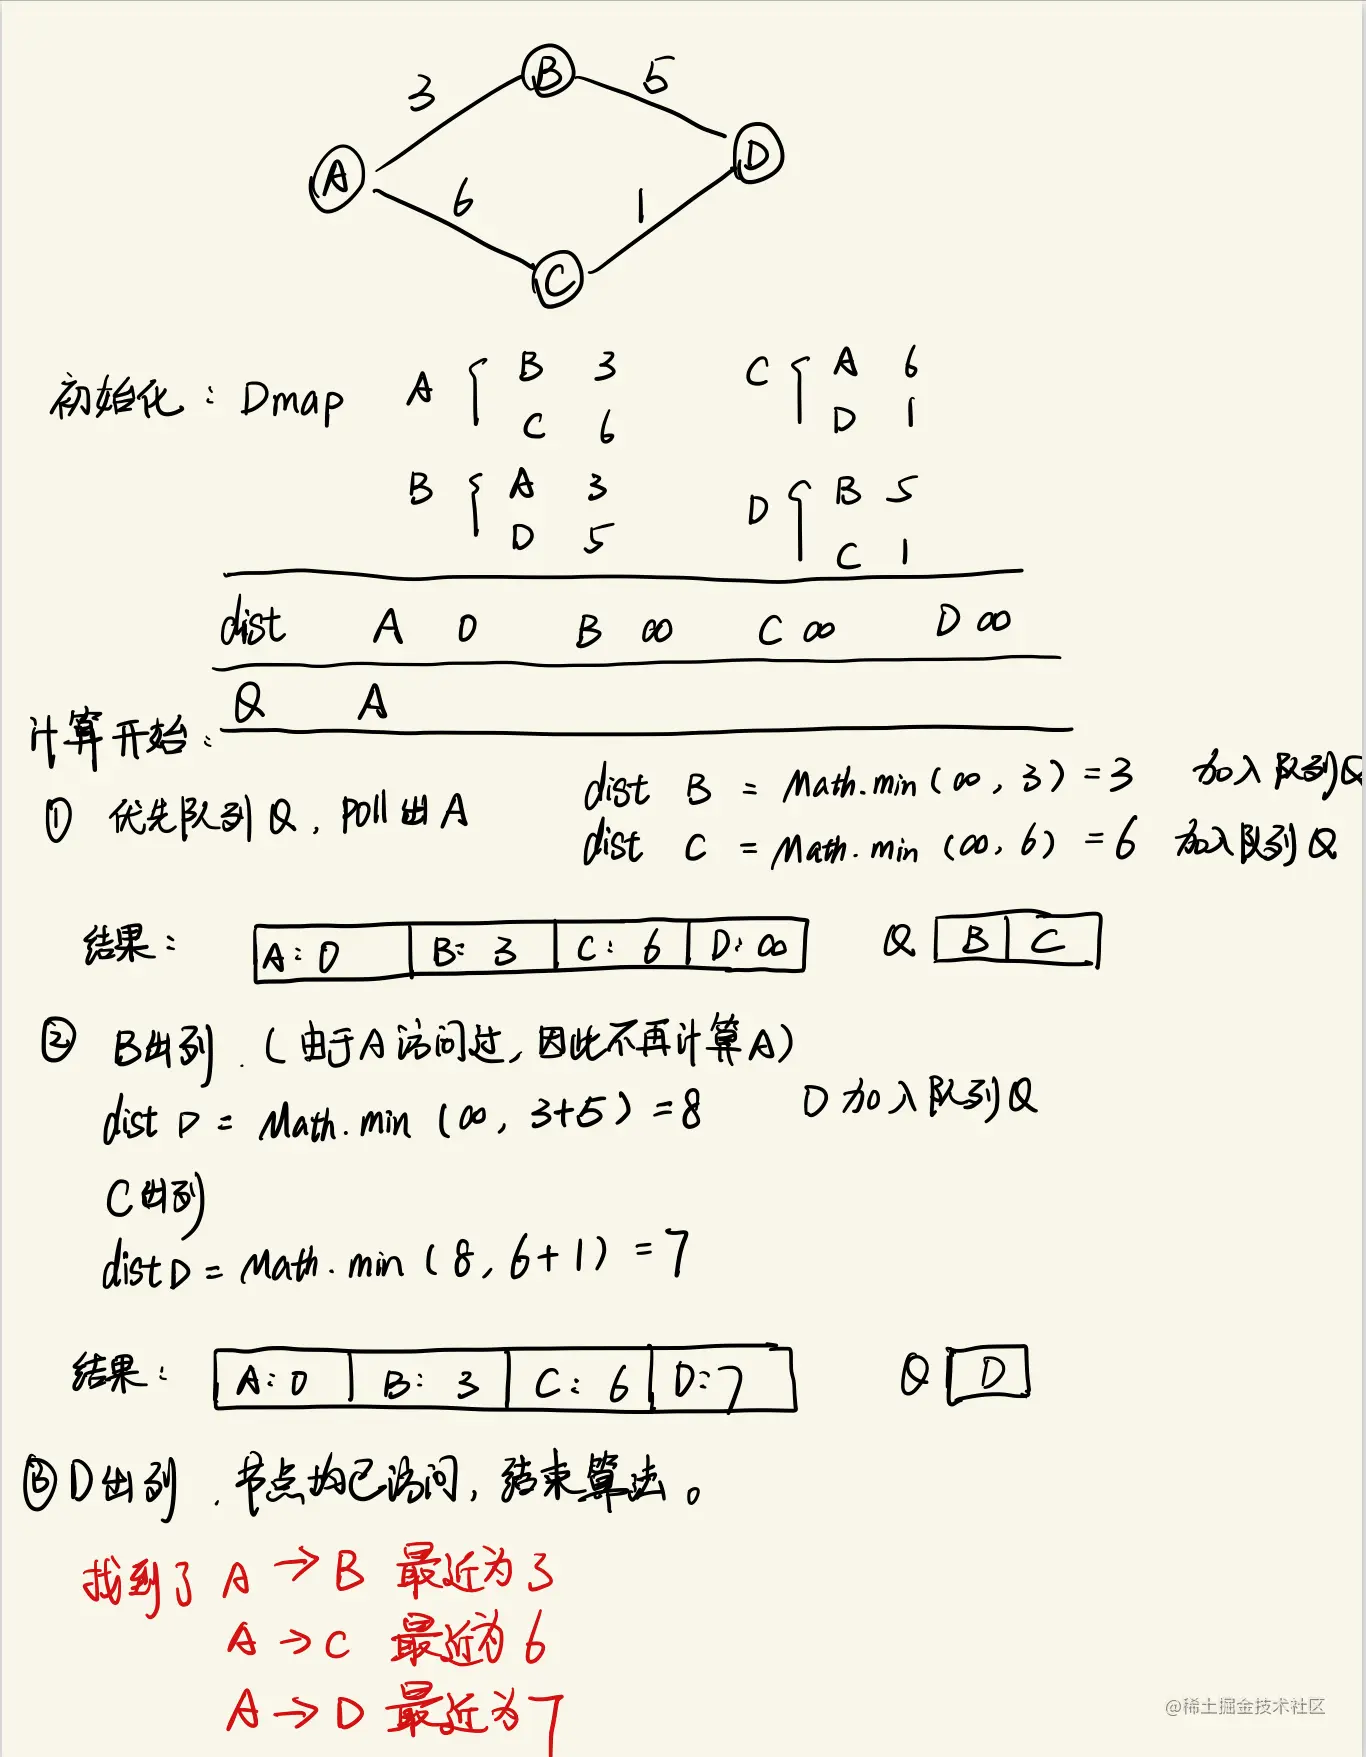 B
3
5
A
D
6
1
C
初始化: Dmap
A { B 3
C 6
C { A 6
D 1
B { A 3
D 5
D { B 5
C 1
dist A 0 B ∞ C ∞ D ∞
Q A
计算开始:
① 优先队列Q, poll出A
dist B = Math.min(∞, 3) = 3 加入队列Q
dist C = Math.min(∞, 6) = 6 加入队列Q
结果: A:0 B:3 C:6 D:∞ Q B C
② B出列.(由于A访问过,因此不再计算A)
dist D = Math.min(∞, 3+5) = 8 D加入队列Q
C出列
dist D = Math.min(8, 6+1) = 7
结果: A:0 B:3 C:6 D:7 Q D
③ D出列.节点均已访问,结束算法。
找到了 A→B 最近为3
A→C 最近为6
A→D 最近为7
@稀土掘金技术社区